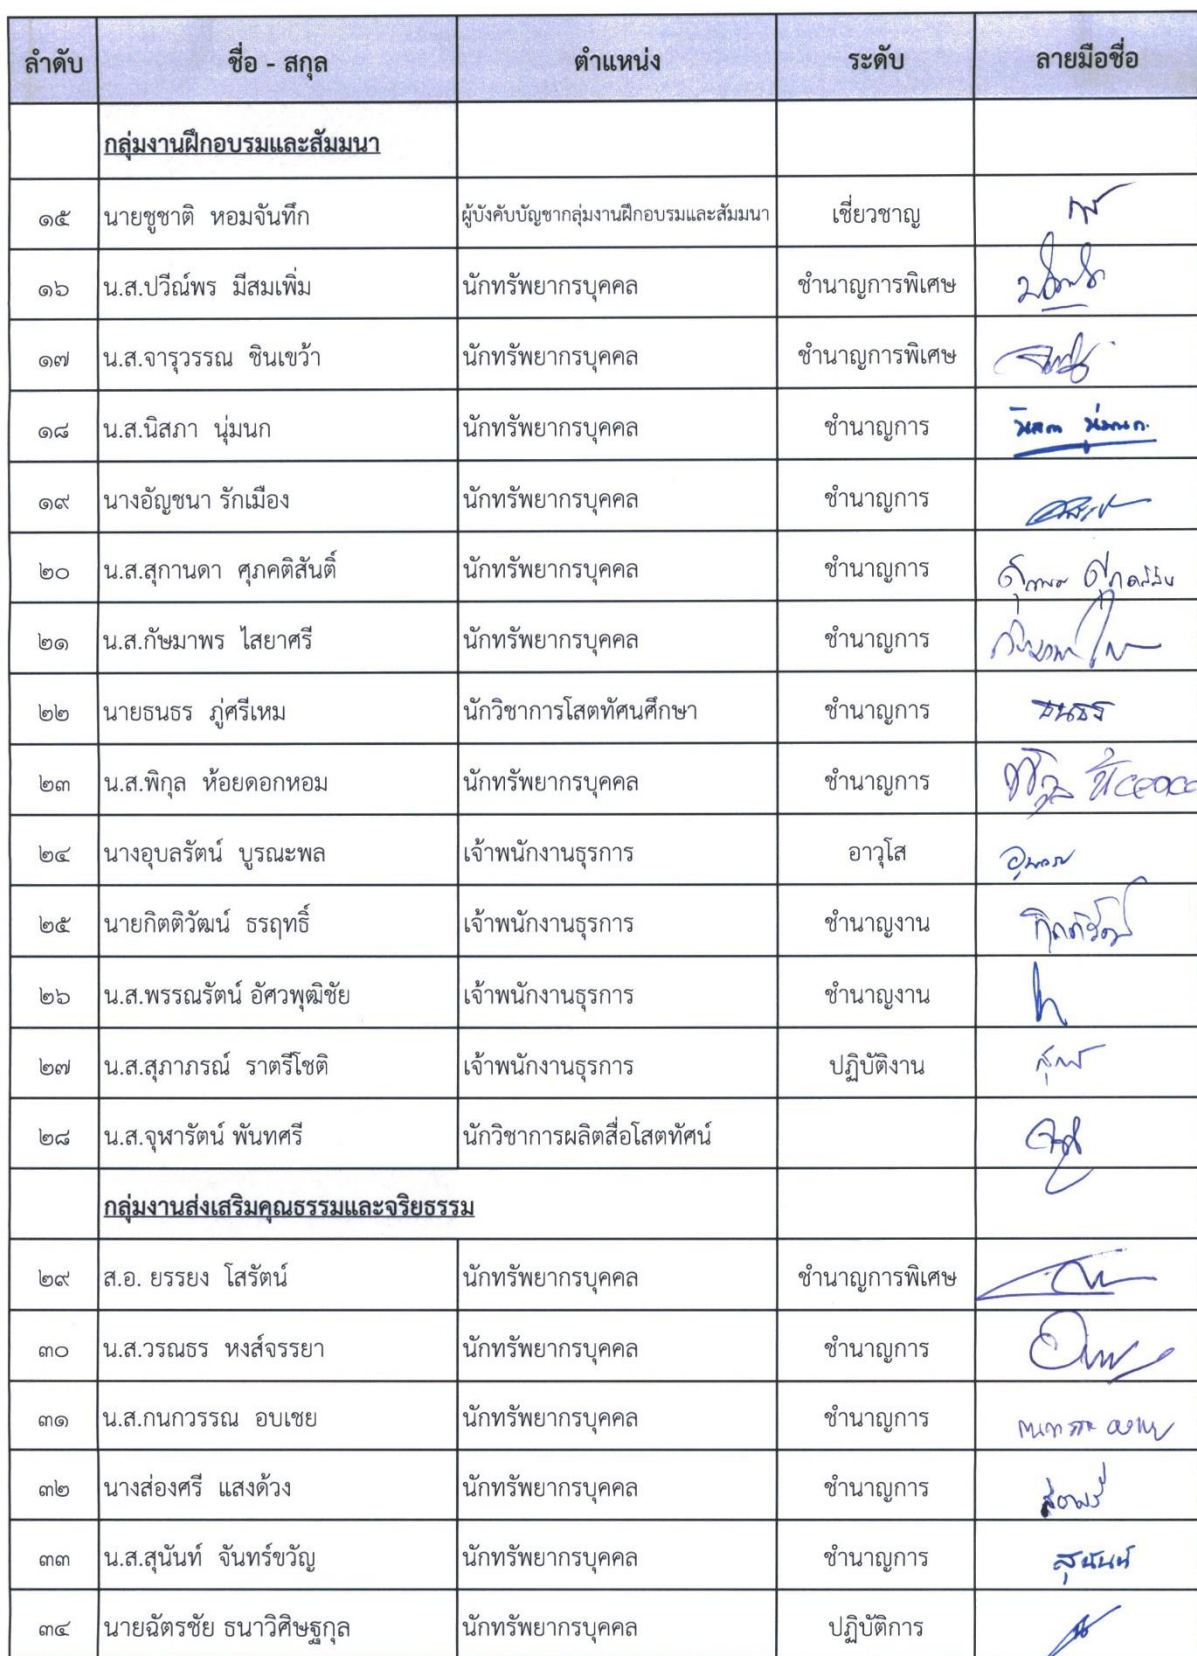 ลำดับ ชื่อ - สกุล ตำแหน่ง ระดับ ลายมือชื่อ
กลุ่มงานฝึกอบรมและสัมมนา
๑๕ นายชูชาติ หอมจันทึก ผู้บังคับบัญชากลุ่มงานฝึกอบรมและสัมมนา เชี่ยวชาญ
๑๖ น.ส.ปวีณ์พร มีสมเพิ่ม นักทรัพยากรบุคคล ชำนาญการพิเศษ
๑๗ น.ส.จารุวรรณ ชินเขว้า นักทรัพยากรบุคคล ชำนาญการพิเศษ
๑๘ น.ส.นิสภา นุ่มนก นักทรัพยากรบุคคล ชำนาญการ นิสภา นุ่มนก
๑๙ นางอัญชนา รักเมือง นักทรัพยากรบุคคล ชำนาญการ
๒๐ น.ส.สุกานดา ศุภคติสันติ์ นักทรัพยากรบุคคล ชำนาญการ
๒๑ น.ส.กัษมาพร ไสยาศรี นักทรัพยากรบุคคล ชำนาญการ
๒๒ นายธนธร ภู่ศรีเหม นักวิชาการโสตทัศนศึกษา ชำนาญการ ธนธร
๒๓ น.ส.พิกุล ห้อยดอกหอม นักทรัพยากรบุคคล ชำนาญการ
๒๔ นางอุบลรัตน์ บูรณะพล เจ้าพนักงานธุรการ อาวุโส
๒๕ นายกิตติวัฒน์ ธรฤทธิ์ เจ้าพนักงานธุรการ ชำนาญงาน กิตติวัฒน์
๒๖ น.ส.พรรณรัตน์ อัศวพุฒิชัย เจ้าพนักงานธุรการ ชำนาญงาน
๒๗ น.ส.สุภาภรณ์ ราตรีโชติ เจ้าพนักงานธุรการ ปฏิบัติงาน
๒๘ น.ส.จุฬารัตน์ พันทศรี นักวิชาการผลิตสื่อโสตทัศน์
กลุ่มงานส่งเสริมคุณธรรมและจริยธรรม
๒๙ ส.อ. ยรรยง โสรัตน์ นักทรัพยากรบุคคล ชำนาญการพิเศษ
๓๐ น.ส.วรณธร หงส์จรรยา นักทรัพยากรบุคคล ชำนาญการ
๓๑ น.ส.กนกวรรณ อบเชย นักทรัพยากรบุคคล ชำนาญการ
๓๒ นางส่องศรี แสงด้วง นักทรัพยากรบุคคล ชำนาญการ
๓๓ น.ส.สุนันท์ จันทร์ขวัญ นักทรัพยากรบุคคล ชำนาญการ สุนันท์
๓๔ นายฉัตรชัย ธนาวิศิษฐกุล นักทรัพยากรบุคคล ปฏิบัติการ